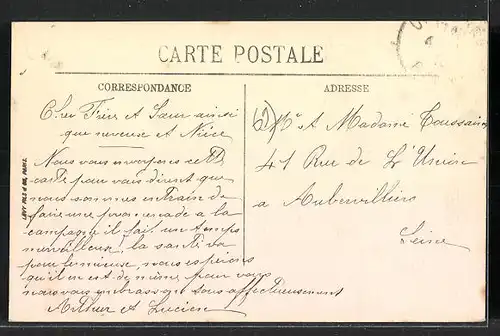 CARTE POSTALE
CORRESPONDANCE
Cher Frère et Sœur ainsi
que neveuse et Nièce
Nous vous envoyons cette
carte pour vous dirent que
nous sommes en train de
faire une promenade a la
campagne il fait un temps
merveilleux, la santé va
pour le mieux, nous espérons
qu'il en est de même pour vous
nous vous embrassons tous affectueusement
Arthur et Lucien
ADRESSE
Mr et Madame Toussaint
41 Rue de L'Union
a Aubervilliers
Seine
LEVY FILS & Cie, PARIS.